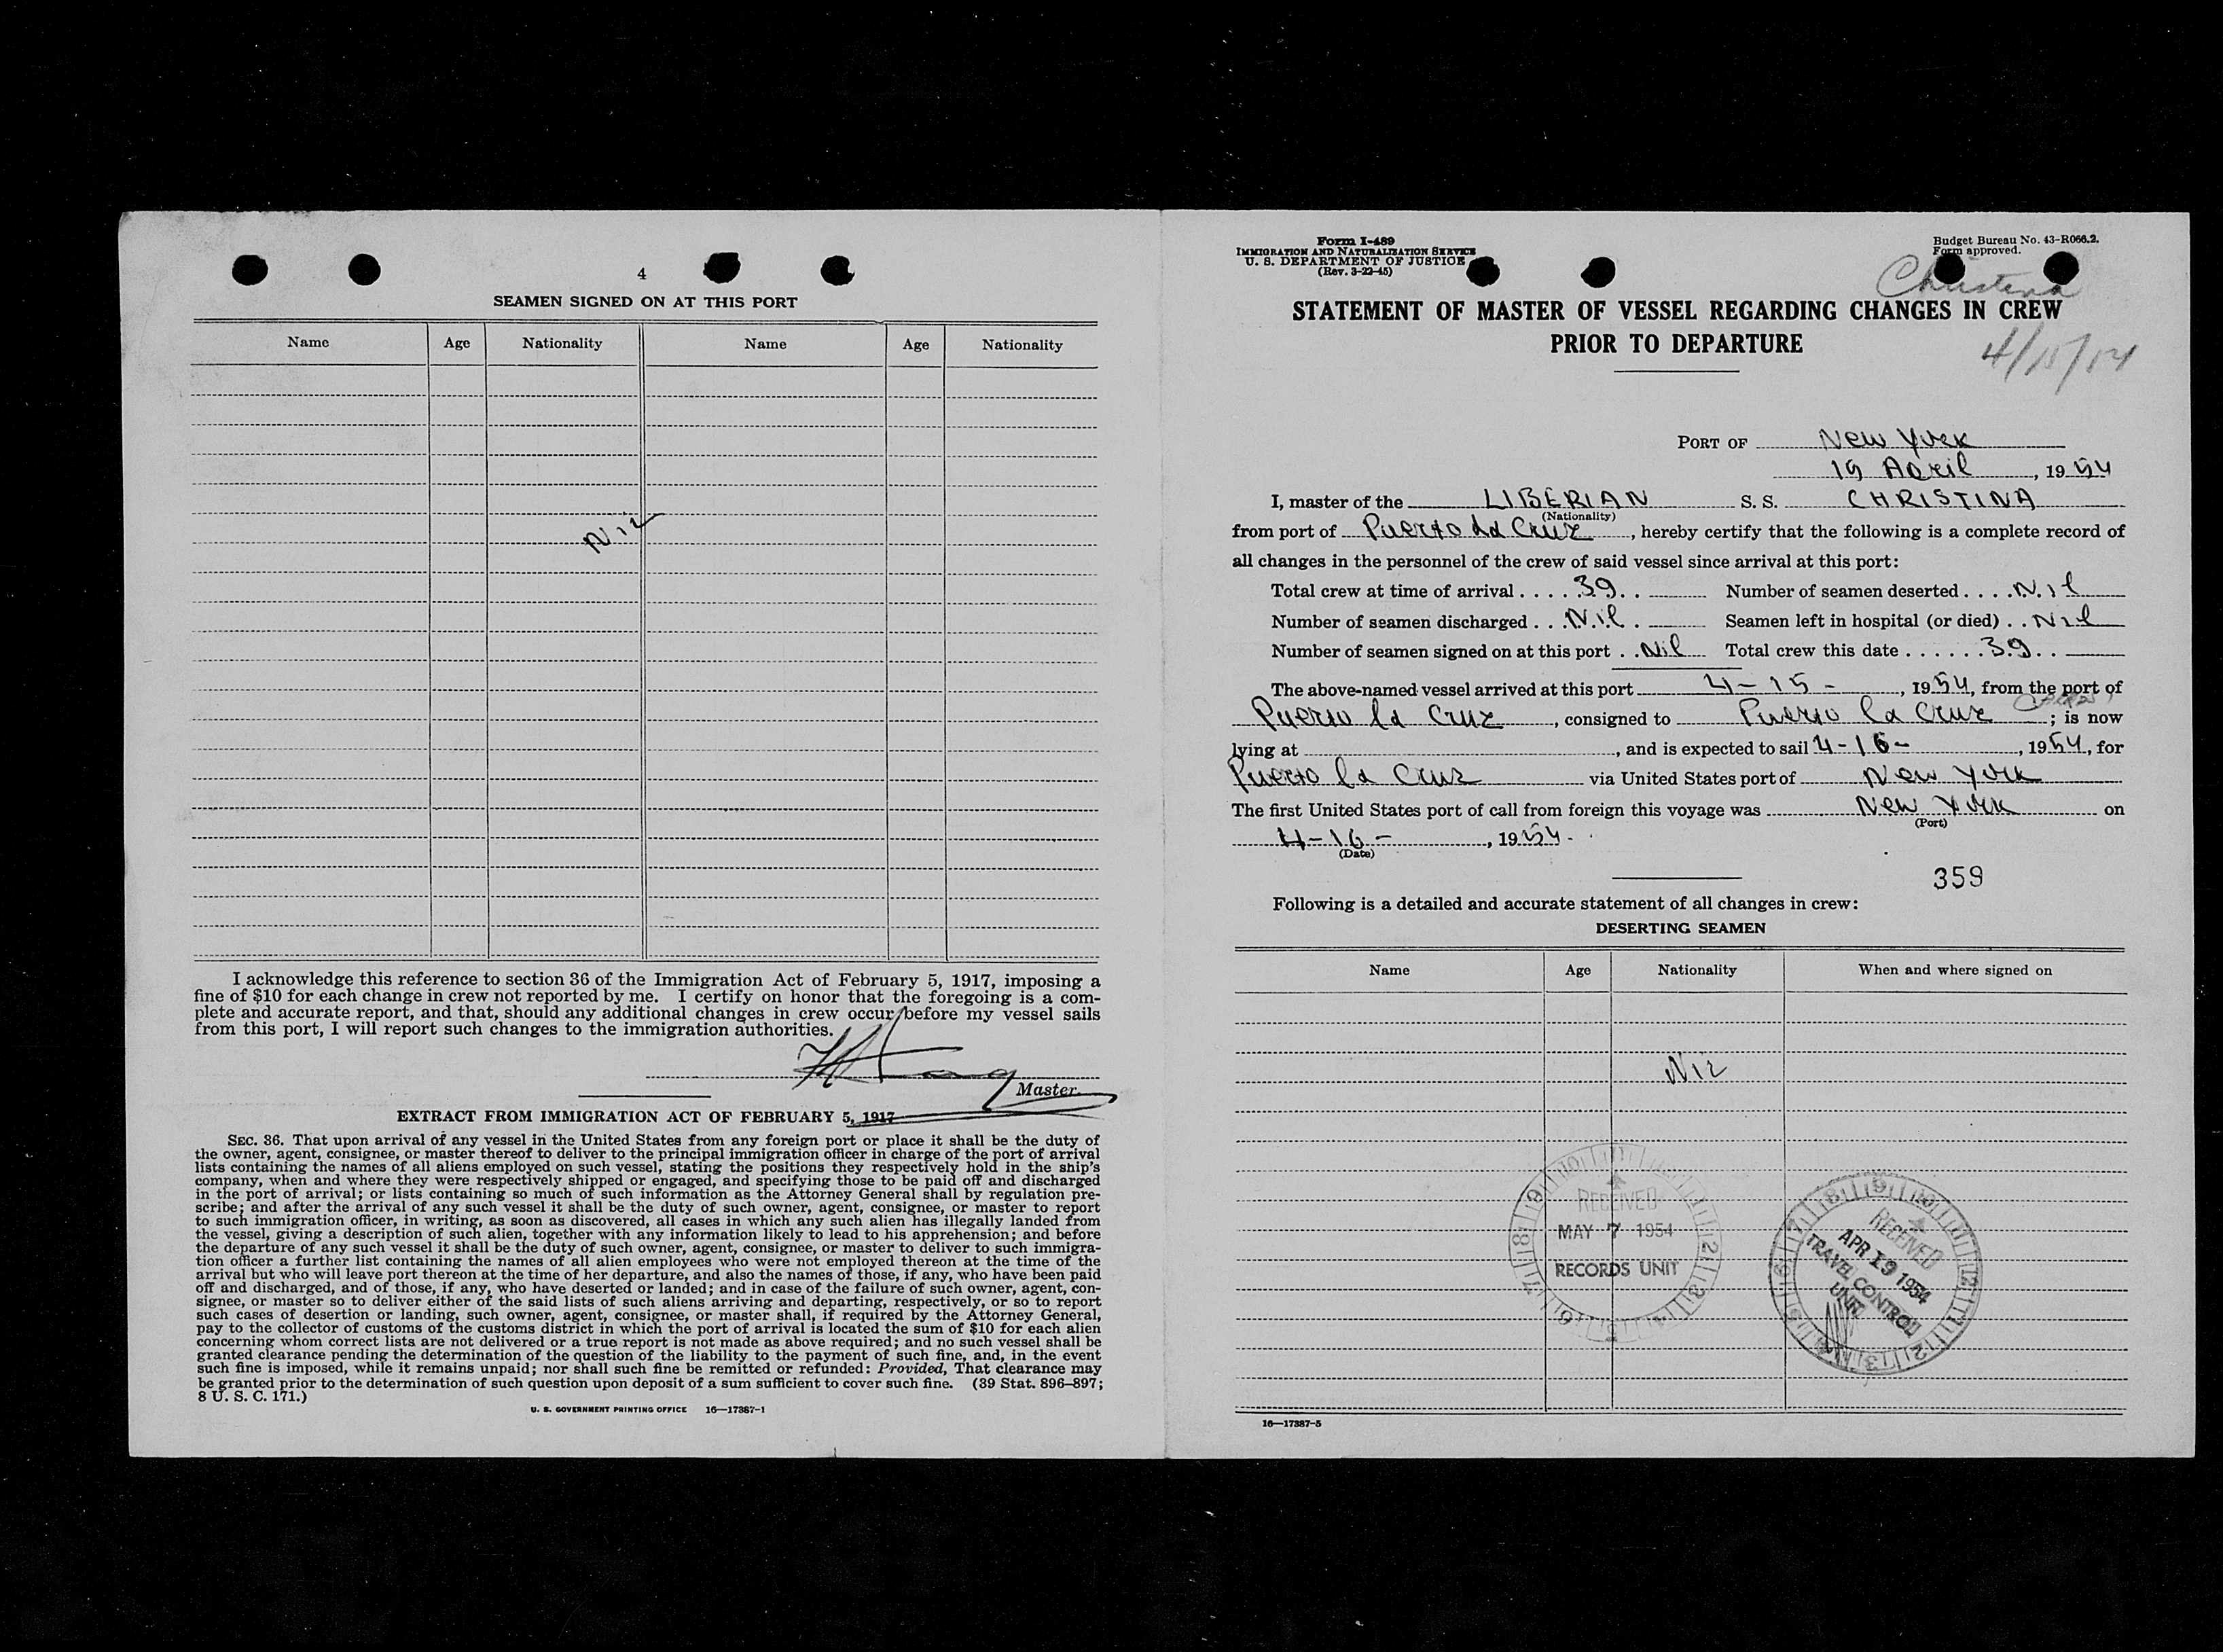 4
SEAMEN SIGNED ON AT THIS PORT
Name Age Nationality Name Age Nationality
Nil
I acknowledge this reference to section 36 of the Immigration Act of February 5, 1917, imposing a
fine of $10 for each change in crew not reported by me. I certify on honor that the foregoing is a com-
plete and accurate report, and that, should any additional changes in crew occur before my vessel sails
from this port, I will report such changes to the immigration authorities.
Master.
EXTRACT FROM IMMIGRATION ACT OF FEBRUARY 5, 1917
SEC. 36. That upon arrival of any vessel in the United States from any foreign port or place it shall be the duty of
the owner, agent, consignee, or master thereof to deliver to the principal immigration officer in charge of the port of arrival
lists containing the names of all aliens employed on such vessel, stating the positions they respectively hold in the ship's
company, when and where they were respectively shipped or engaged, and specifying those to be paid off and discharged
in the port of arrival; or lists containing so much of such information as the Attorney General shall by regulation pre-
scribe; and after the arrival of any such vessel it shall be the duty of such owner, agent, consignee, or master to report
to such immigration officer, in writing, as soon as discovered, all cases in which any such alien has illegally landed from
the vessel, giving a description of such alien, together with any information likely to lead to his apprehension; and before
the departure of any such vessel it shall be the duty of such owner, agent, consignee, or master to deliver to such immigra-
tion officer a further list containing the names of all alien employees who were not employed thereon at the time of the
arrival but who will leave port thereon at the time of her departure, and also the names of those, if any, who have been paid
off and discharged, and of those, if any, who have deserted or landed; and in case of the failure of such owner, agent, con-
signee, or master so to deliver either of the said lists of such aliens arriving and departing, respectively, or so to report
such cases of desertion or landing, such owner, agent, consignee, or master shall, if required by the Attorney General,
pay to the collector of customs of the customs district in which the port of arrival is located the sum of $10 for each alien
concerning whom correct lists are not delivered or a true report is not made as above required; and no such vessel shall be
granted clearance pending the determination of the question of the liability to the payment of such fine, and, in the event
such fine is imposed, while it remains unpaid; nor shall such fine be remitted or refunded: Provided, That clearance may
be granted prior to the determination of such question upon deposit of a sum sufficient to cover such fine. (39 Stat. 896–897;
8 U. S. C. 171.)
U. S. GOVERNMENT PRINTING OFFICE 16—17387-1
Form I-489
IMMIGRATION AND NATURALIZATION SERVICE
U. S. DEPARTMENT OF JUSTICE
(Rev. 3-22-45)
Budget Bureau No. 43-R066.2.
Form approved.
Christina
STATEMENT OF MASTER OF VESSEL REGARDING CHANGES IN CREW
PRIOR TO DEPARTURE
4/15/54
PORT OF New York
19 April, 1954
I, master of the LIBERIAN S. S. CHRISTINA
(Nationality)
from port of Puerto La Cruz, hereby certify that the following is a complete record of
all changes in the personnel of the crew of said vessel since arrival at this port:
Total crew at time of arrival . . . . 39 . . Number of seamen deserted . . . . Nil
Number of seamen discharged . . . Nil . Seamen left in hospital (or died) . . Nil
Number of seamen signed on at this port . . Nil Total crew this date . . . . . . 39 . .
The above-named vessel arrived at this port 4-15-, 1954, from the port of
Puerto la Cruz, consigned to Puerto la Cruz; is now
lying at , and is expected to sail 4-16-, 1954, for
Puerto la Cruz via United States port of New York
The first United States port of call from foreign this voyage was New York on
(Port)
4-16-, 1954.
(Date)
359
Following is a detailed and accurate statement of all changes in crew:
DESERTING SEAMEN
Name Age Nationality When and where signed on
Nil
RECEIVED
MAY 7 1954
RECORDS UNIT
RECEIVED
APR 19 1954
TRAVEL CONTROL
UNIT
16—17387-5